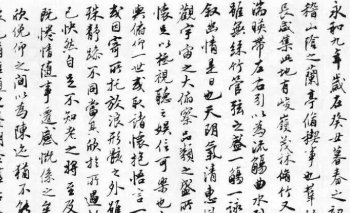 永和九年歲在癸丑暮春之初
稽山陰之蘭亭脩禊事也羣
咸集此地有峻領茂林脩竹又
湍暎帶左右引以為流觴曲水
雖無絲竹管弦之盛一觴一詠
敘幽情是日也天朗氣清惠風
觀宇宙之大俯察品類之盛所
懷足以極視聽之娛信可樂也
與俯仰一世或取諸懷抱悟言一
或因寄所託放浪形骸之外雖
殊靜躁不同當其欣於所遇
己快然自足不知老之將至及
既惓情隨事遷感慨係之矣
欣俛仰之間以為陳迹猶不能